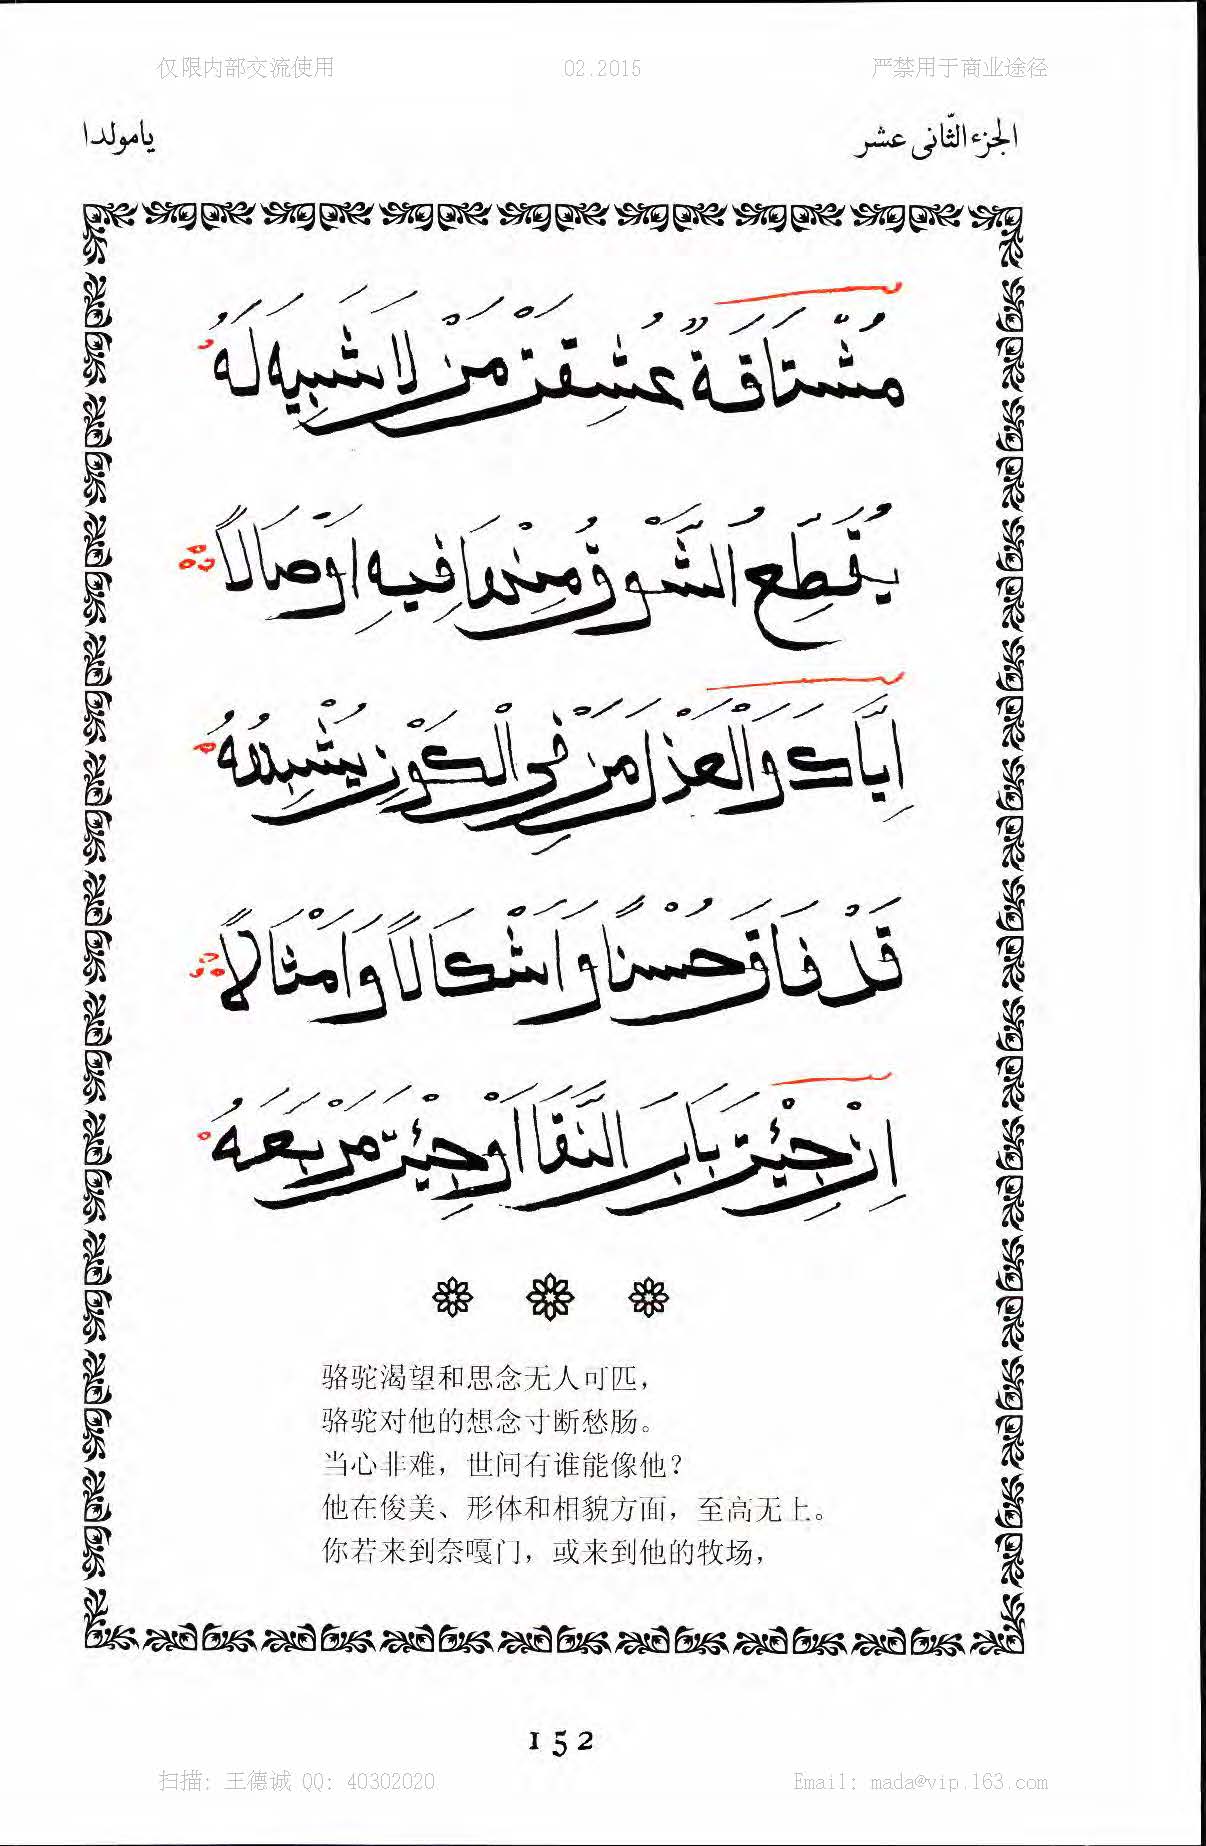 仅限内部交流使用 02.2015 严禁用于商业途径
الجزء الثّانى عشر يامولدا
مُشْتَاقَةٌ عَشِقَتْ مَنْ لَا شَبِيهَ لَهُ
يُقَطِّعُ الشَّوْقُ مِنْهَا فِيهِ اَوْصَالًا
اِيَّاكَ وَالْعَذْلَ مَنْ فِى الْكَوْنِ يُشْبِهُهُ
قَدْ فَاقَ حُسْنًا وَاَشْكَالًا وَاَمْثَالًا
اِنْ جِئْتَ بَابَ النَّقَا اَوْ جِئْتَ مَرْبَعَهُ
骆驼渴望和思念无人可匹，
骆驼对他的想念寸断愁肠。
当心非难，世间有谁能像他？
他在俊美、形体和相貌方面，至高无上。
你若来到奈嘎门，或来到他的牧场，
152
扫描: 王德诚 QQ: 40302020 Email: mada@vip.163.com